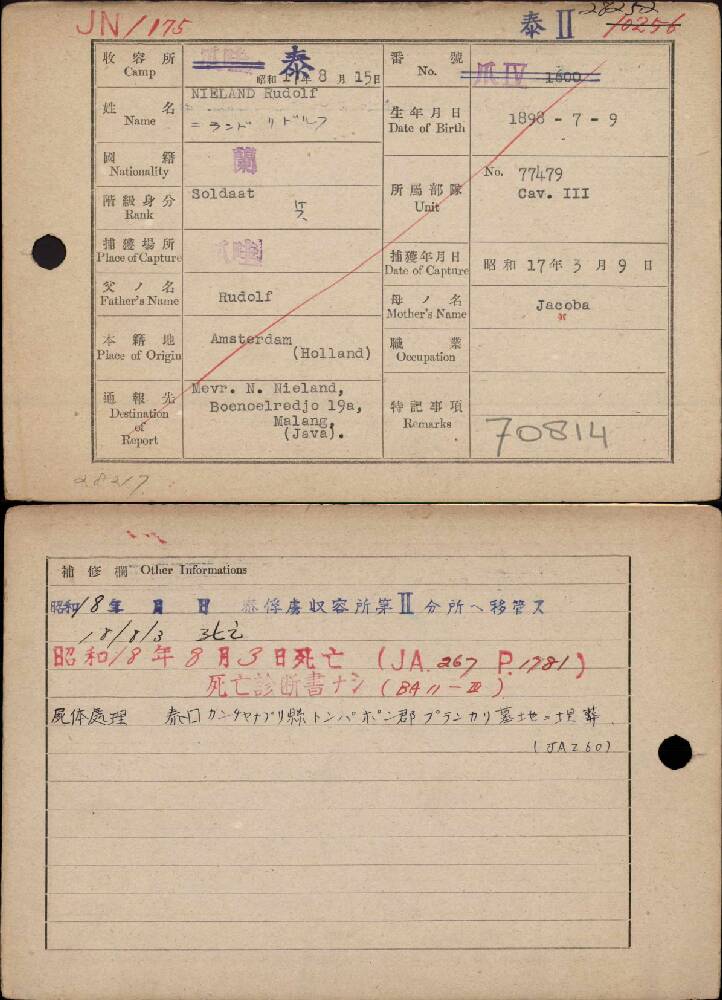 JN/175
泰 II
28252
10256
收容所 Camp 爪哇 泰 昭和17年8月15日
番號 No. 爪IV 1600
姓名 Name NIELAND Rudolf
ニランド リドルフ
生年月日 Date of Birth 1898 - 7 - 9
國籍 Nationality 蘭
階級身分 Rank Soldaat
所屬部隊 Unit No. 77479
Cav. III
捕獲場所 Place of Capture 爪哇
捕獲年月日 Date of Capture 昭和17年3月9日
父ノ名 Father's Name Rudolf
母ノ名 Mother's Name Jacoba
本籍地 Place of Origin Amsterdam
(Holland)
職業 Occupation
通報先 Destination of Report Mevr. N. Nieland,
Boenoelredjo 19a,
Malang,
(Java).
特記事項 Remarks 70814
28217
補修欄 Other Informations
昭和18年 月 日 泰俘虜収容所第II分所ヘ移管ス
18/8/3 死亡
昭和18年8月3日死亡 (JA.267 P.1781)
死亡診断書ナシ (BA11-III)
屍体處理 泰国カンチャナブリ縣トンパポン郡プランカリ墓地ニ埋葬
(JA260)